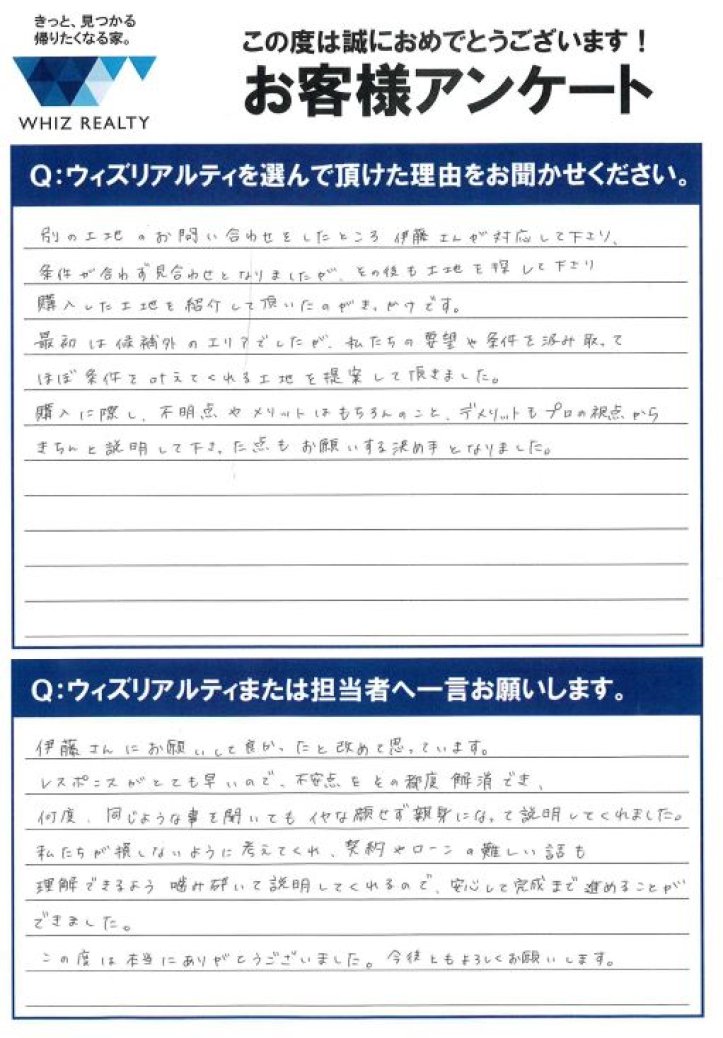 きっと、見つかる
帰りたくなる家。
WHIZ REALTY
この度は誠におめでとうございます！
お客様アンケート
Q:ウィズリアルティを選んで頂けた理由をお聞かせください。
別の土地のお問い合わせをしたところ伊藤さんが対応して下さり、
条件が合わず見合わせとなりましたが、その後も土地を探して下さり
購入した土地を紹介して頂いたのがきっかけです。
最初は候補外のエリアでしたが、私たちの要望や条件を汲み取って
ほぼ条件を叶えてくれる土地を提案して頂きました。
購入に際し、不明点やメリットはもちろんのこと、デメリットもプロの視点から
きちんと説明して下さった点もお願いする決め手となりました。
Q:ウィズリアルティまたは担当者へ一言お願いします。
伊藤さんにお願いして良かったと改めて思っています。
レスポンスがとても早いので、不安点をその都度解消でき、
何度、同じような事を聞いてもイヤな顔せず親身になって説明してくれました。
私たちが損しないように考えてくれ、契約やローンの難しい話も
理解できるよう噛み砕いて説明してくれるので、安心して完成まで進めることが
できました。
この度は本当にありがとうございました。今後ともよろしくお願いします。